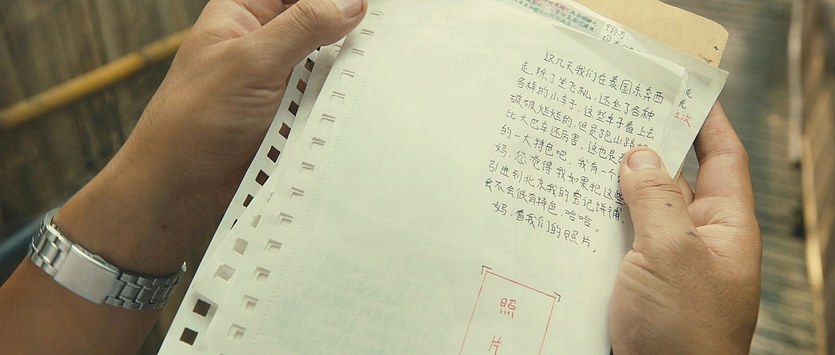 这几天我们在泰国东奔西
走,除了坐飞机,还坐了各种
各样的小车子,这些车子看上去
破破烂烂的,但是跑山路
比大巴车还厉害,这也是
的一大特色吧,我有一个
妈,您觉得我如果把这些
引进到北京我的宝记饼铺,
会不会很有特色,哈哈。
妈,看我们的照片。
照
片